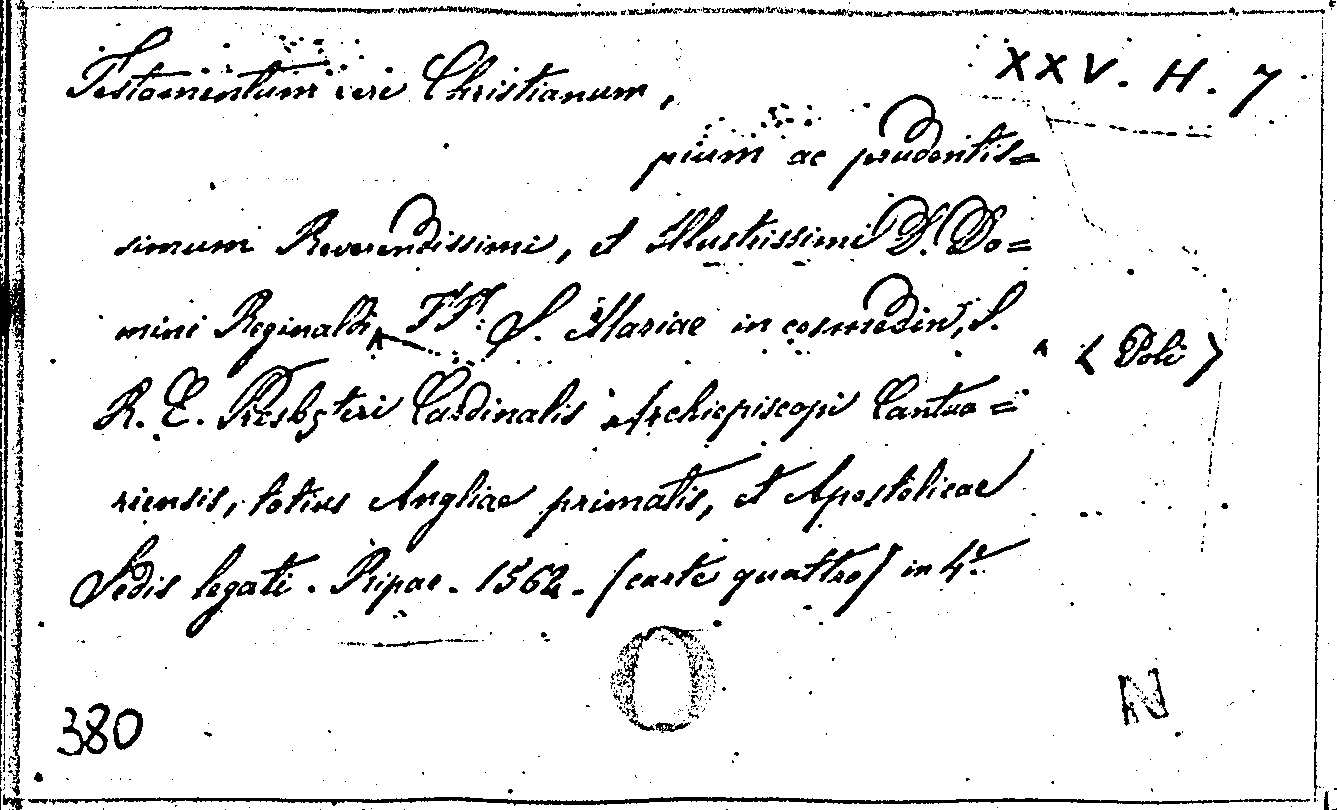 XXV. H. 7
Testamentum veri Christianum,
pium ac prudentis=
simum Reverendissimi, et Illustrissimi D. Do=
mini Reginaldi TT. S. Mariae in cosmedin, S.
< Poli >
R. E. Presbyteri Cardinalis Archiepiscopi Cantua=
riensis, totius Angliae primatis, et Apostolicae
Sedis legati. Ripae. 1562. (carte quattro) in 4.°
380
N